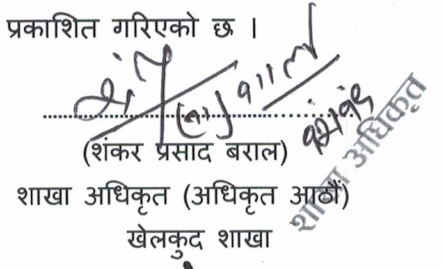 प्रकाशित गरिएको छ ।
(शंकर प्रसाद बराल)
शाखा अधिकृत (अधिकृत आठौं)
खेलकुद शाखा
शाखा अधिकृत